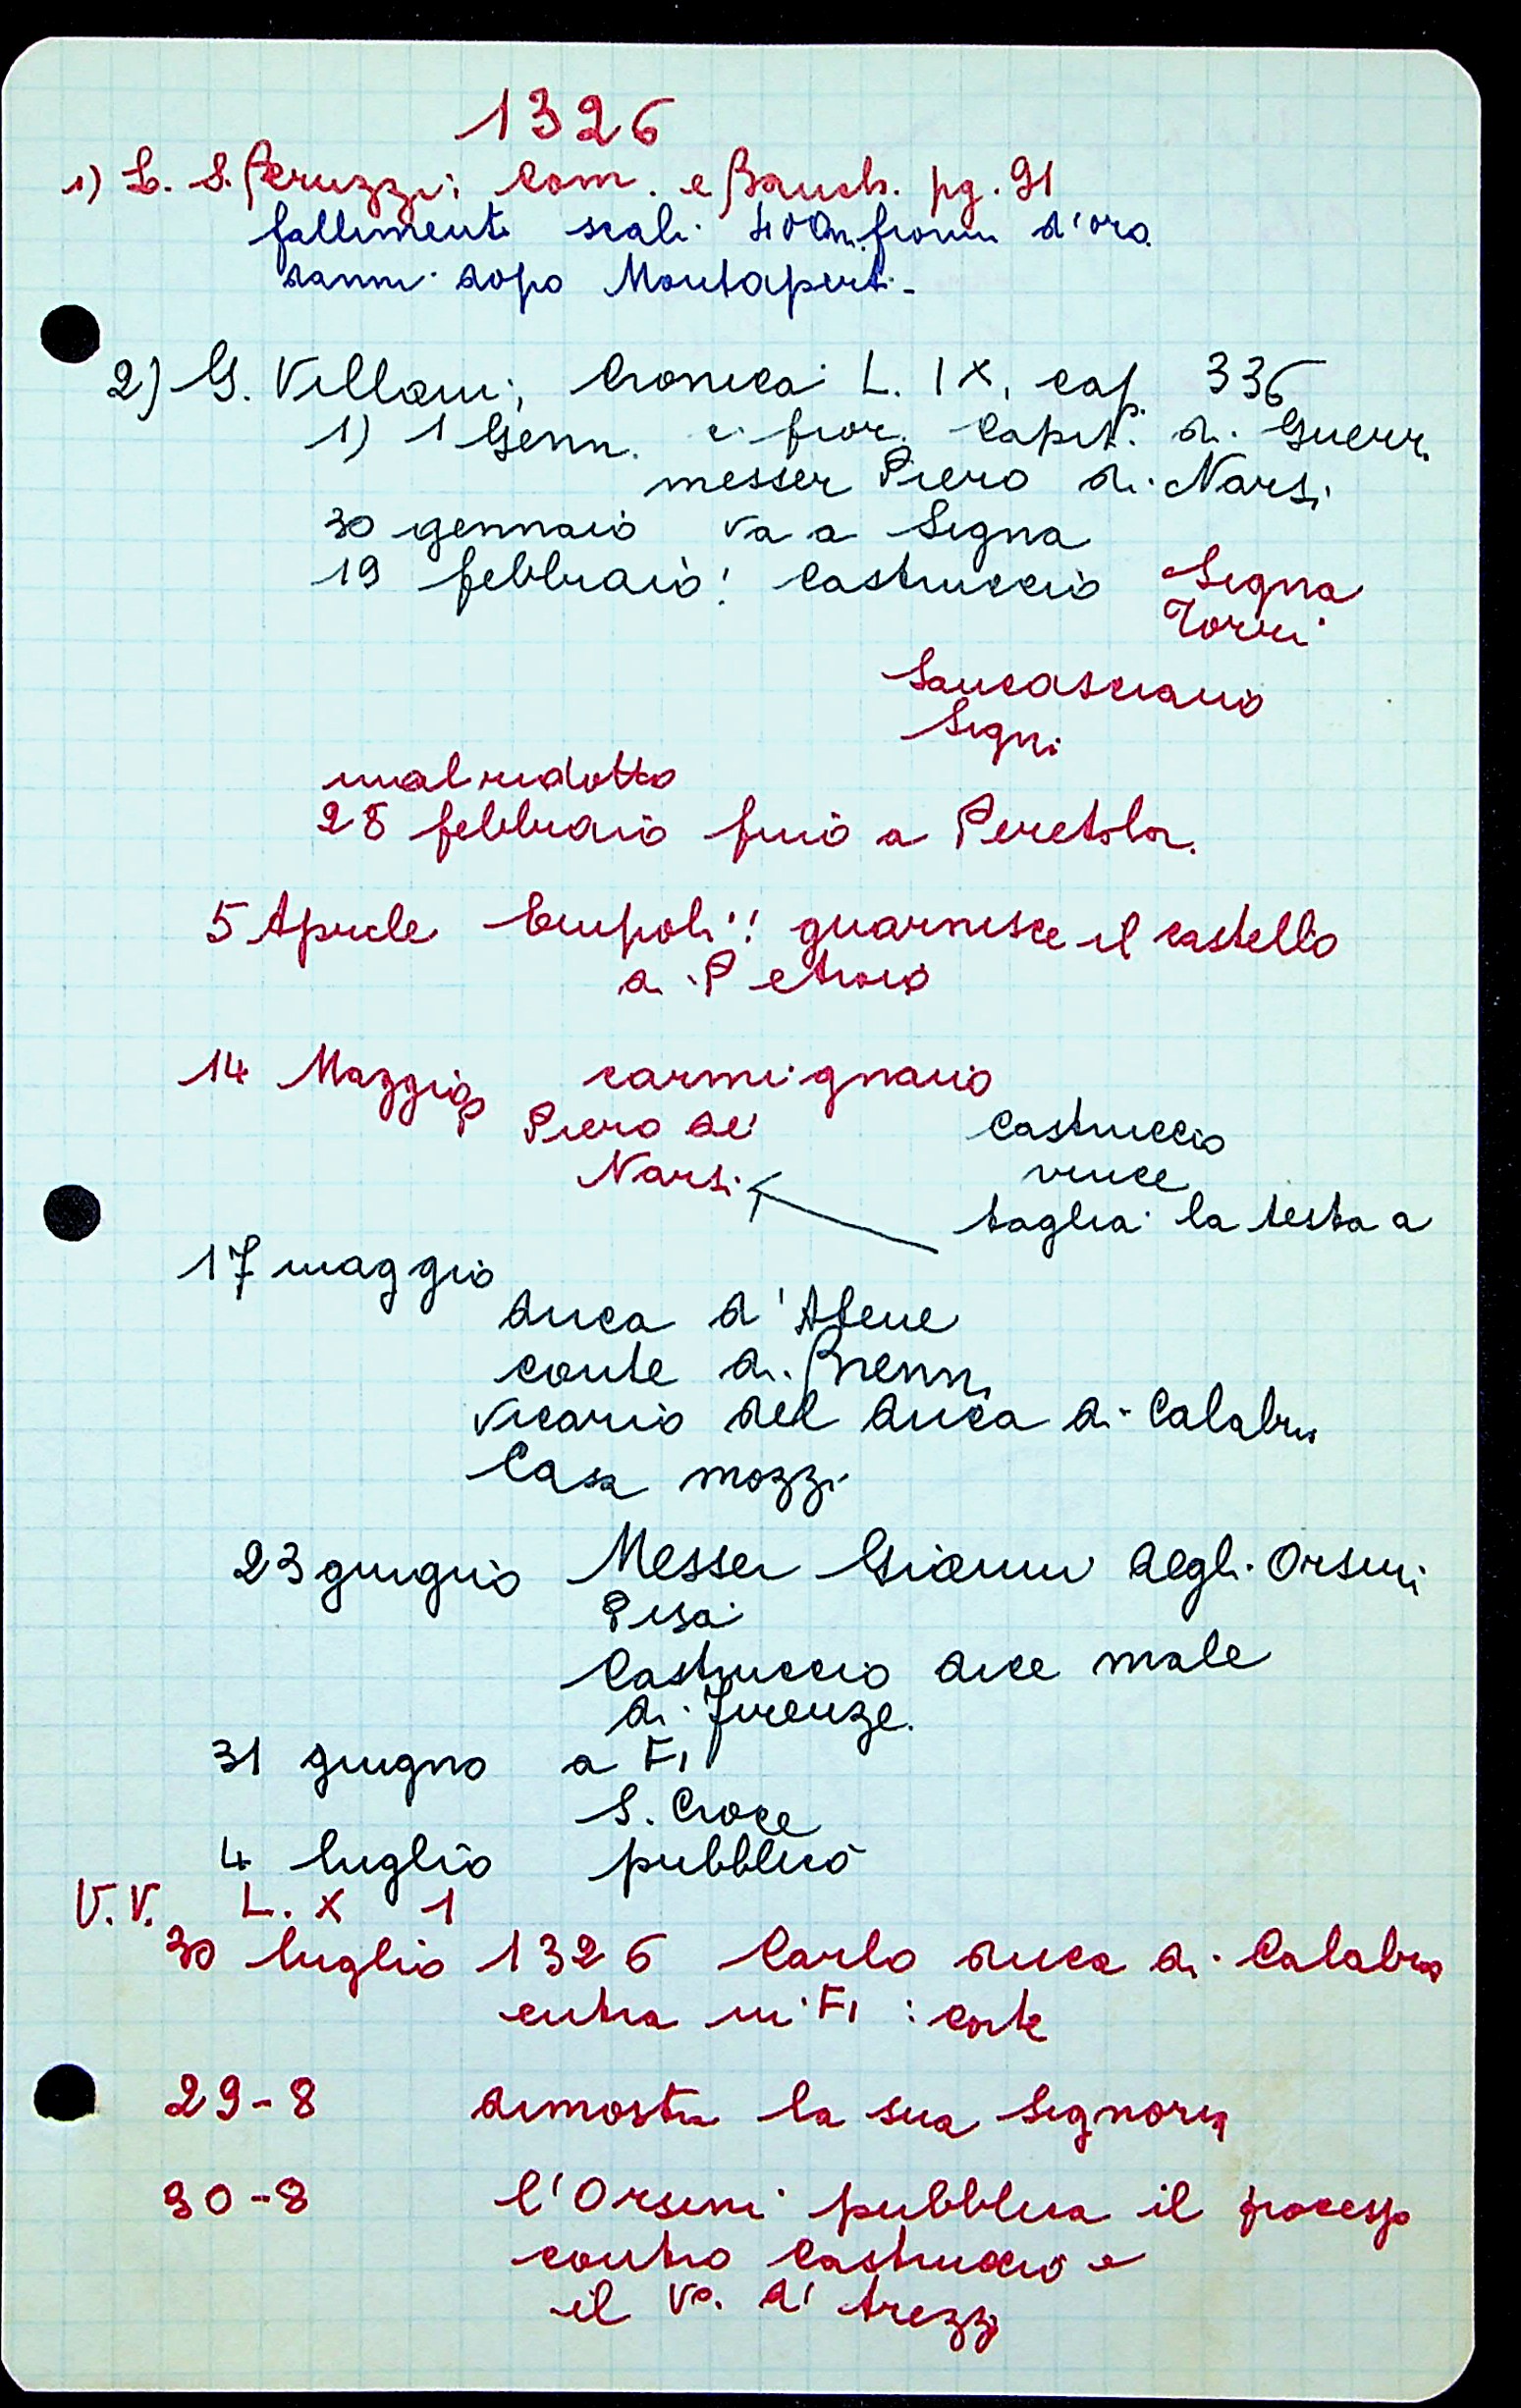 1326
1) L. S. Peruzzi: Com. e Banch. pg. 91
fallimenti scali 400m. fiorini d'oro
danni dopo Montaperti -
2) G. Villani; Cronica: L. IX, cap. 336
1) 1 Genn. i fior. Capit. di Guerr.
messer Piero di Narsi
30 gennaio va a Signa
19 febbraio! Castruccio Signa
Torri
Sancasciano
Signi
mal ridotto
28 febbraio fino a Peretola.
5 Aprile Empoli!! guarnisce il castello
di Petroio
14 Maggio carmignano
Piero de'
Narsi
Castruccio
vince
taglia la testa a
17 maggio
duca d'Atene
conte di Brenn
vicario del duca di Calabri
Casa mozzi
23 giugnio Messer Gianni degli Orsini
Pisa
Castruccio dice male
di Firenze.
31 giugno a FI
S. Croce
4 luglio pubblicò
V.V. L. X 1
30 luglio 1326 Carlo duca di Calabria
entra in FI : corte
29-8 dimostra la sua signoria
30-8 l'Orsini pubblica il processo
contro Castruccio e
il Vo. d'Arezzo